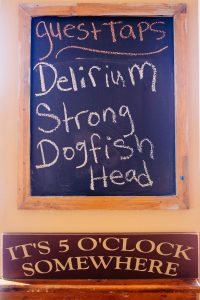 guest Taps
Delirium
Strong
Dogfish
Head
IT'S 5 O'CLOCK
SOMEWHERE